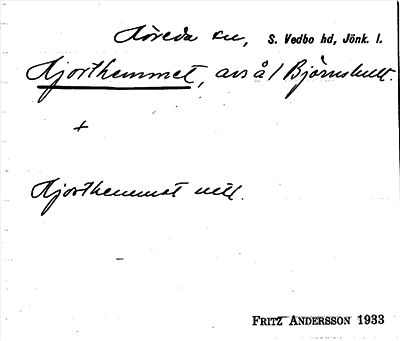 Höreda sn, S. Vedbo hd, Jönk. l.
Hjorthemmet, avs å 1 Björnhult.
+
Hjorthemmet
FRITZ ANDERSSON 1933